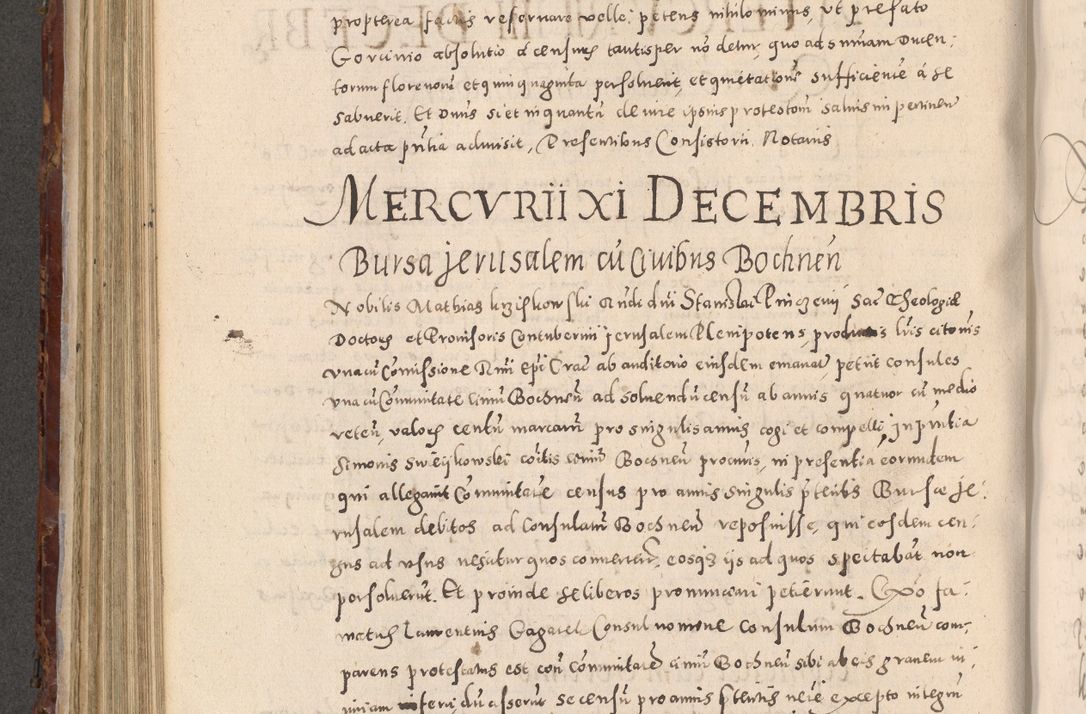 propterea factis reformare velle, petens nihilominus, ut prefato
Gorcinio absolutio a censuris tantisper nō detur, quo ad summam Ducen:
torum florenorū et quinquaginta persoluerit, et quietationē sufficientē á se
habuerit. Et Dn̄us si et in quantū de iure ipsius protestationē saluis in pertinen
ad acta pn̄tia admisit, Presentibus Consistorii Notariis
MERCVRII XI DECEMBRIS
Bursa Jerusalem cū Ciuibus Bochnen̄
Nobilis Mathias dn̄i Stanislai Sac̄ Theologiæ
Doctoris et Prouisoris Contubernii Jerusalem Plenipotens, lr̄is citōnis
vna cū Comissione Rmī Ep̄i Crac̄ ab auditorio eiusdem emanat, petiit consules
vna cū Communitate Bochnen̄ ad soluendū censū ab annis quatuor cū medio
reten̄, valoris centū marcarū pro singulis annis cogi et compelli, in pn̄tia
Simonis Bochnen̄ procuris, in presentia eorundem
qui allegauit Comunitatē census pro annis singulis Bursæ Je:
rusalem debitos ad Consulatū Bochnen̄ reposuisse, qui eosdem cen:
sus ad vsus nescitur quos conuerter̄, eosq3 iis ad quos spectabāt non
persoluerūt. Et proinde se liberos pronunciari petierunt. Ex oō fa:
matus Laurentius Gagatek Consul nomine Consulum Bochnen̄ com:
parens protestatus est con̄ Comunitatē Bochnen̄ sibi ab eis grauem in:
iuriam inferi, dū asserūt se censū pro annis excepto integrū